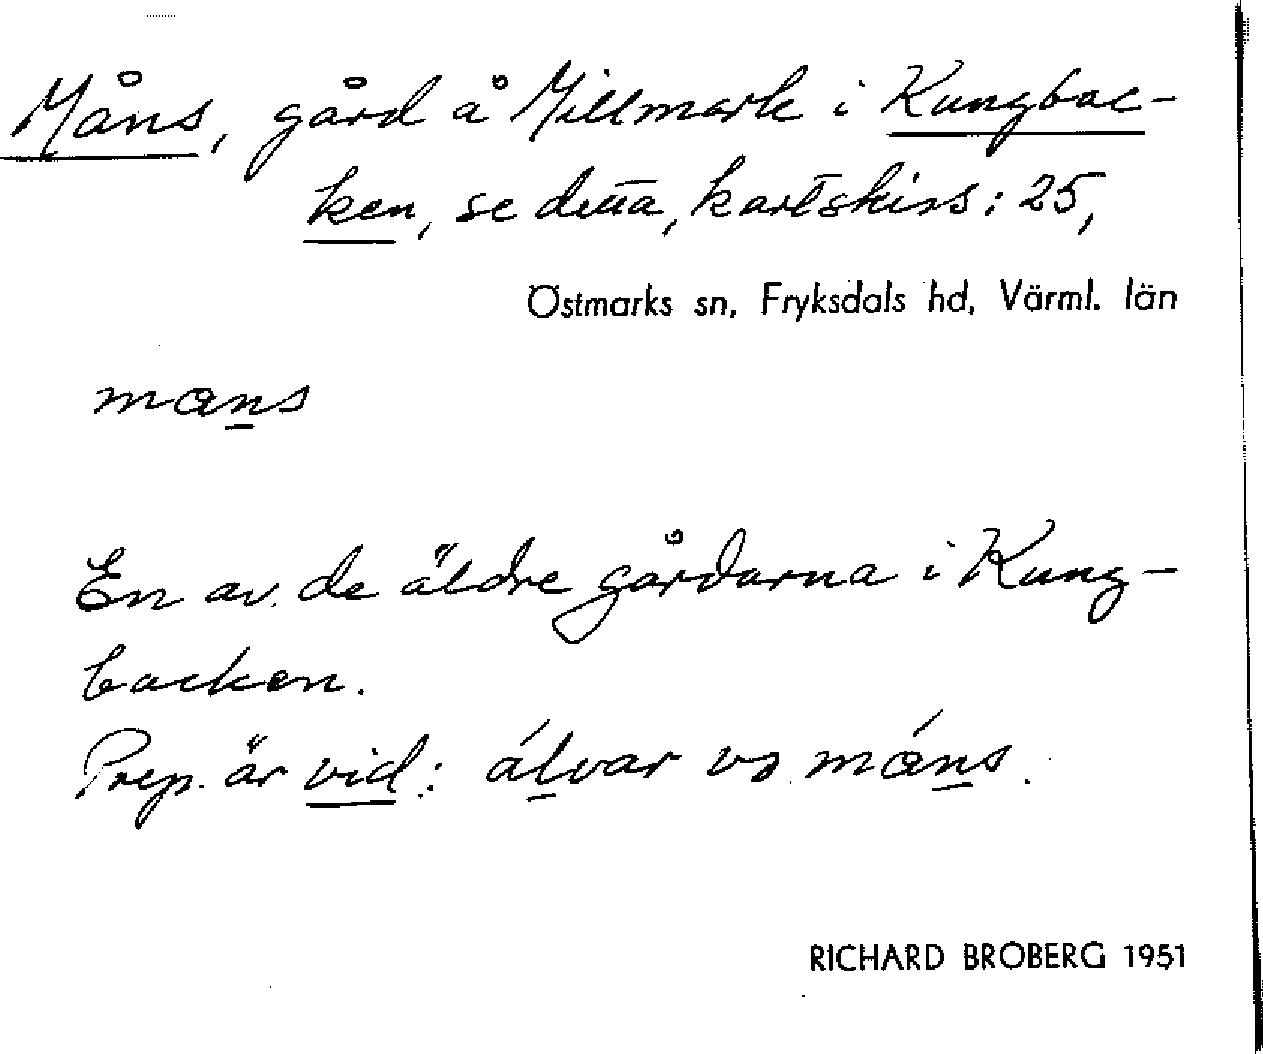 Måns, gård å Millmark i Kungbac-
ken, se detta, kartskiss: 25,
Östmarks sn, Fryksdals hd, Värml. län
mans
En av de äldre gårdarna i Kung-
backen.
Prep. är vid: álvar və máns.
RICHARD BROBERG 1951